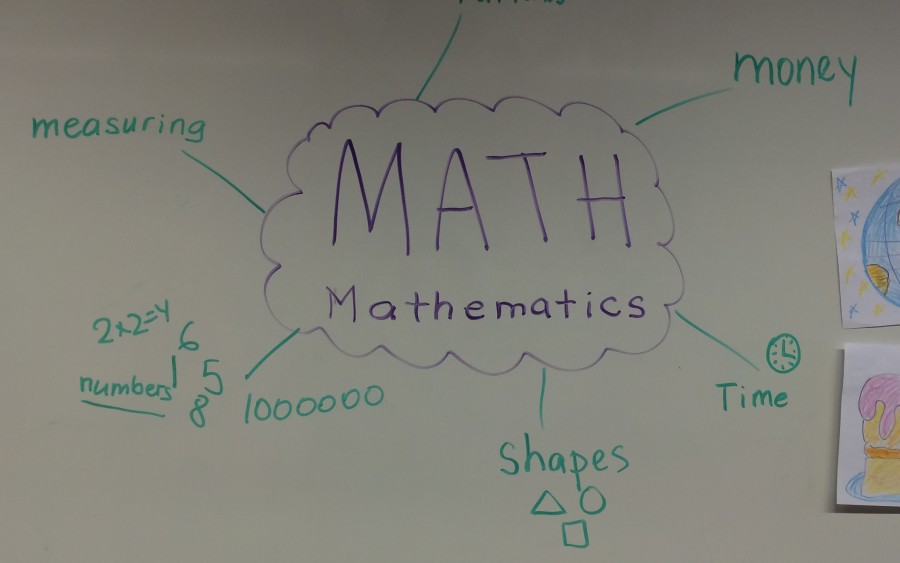 money
measuring
MATH
Mathematics
2×2=4
6
1 5
numbers
8 1000000
Time
Shapes